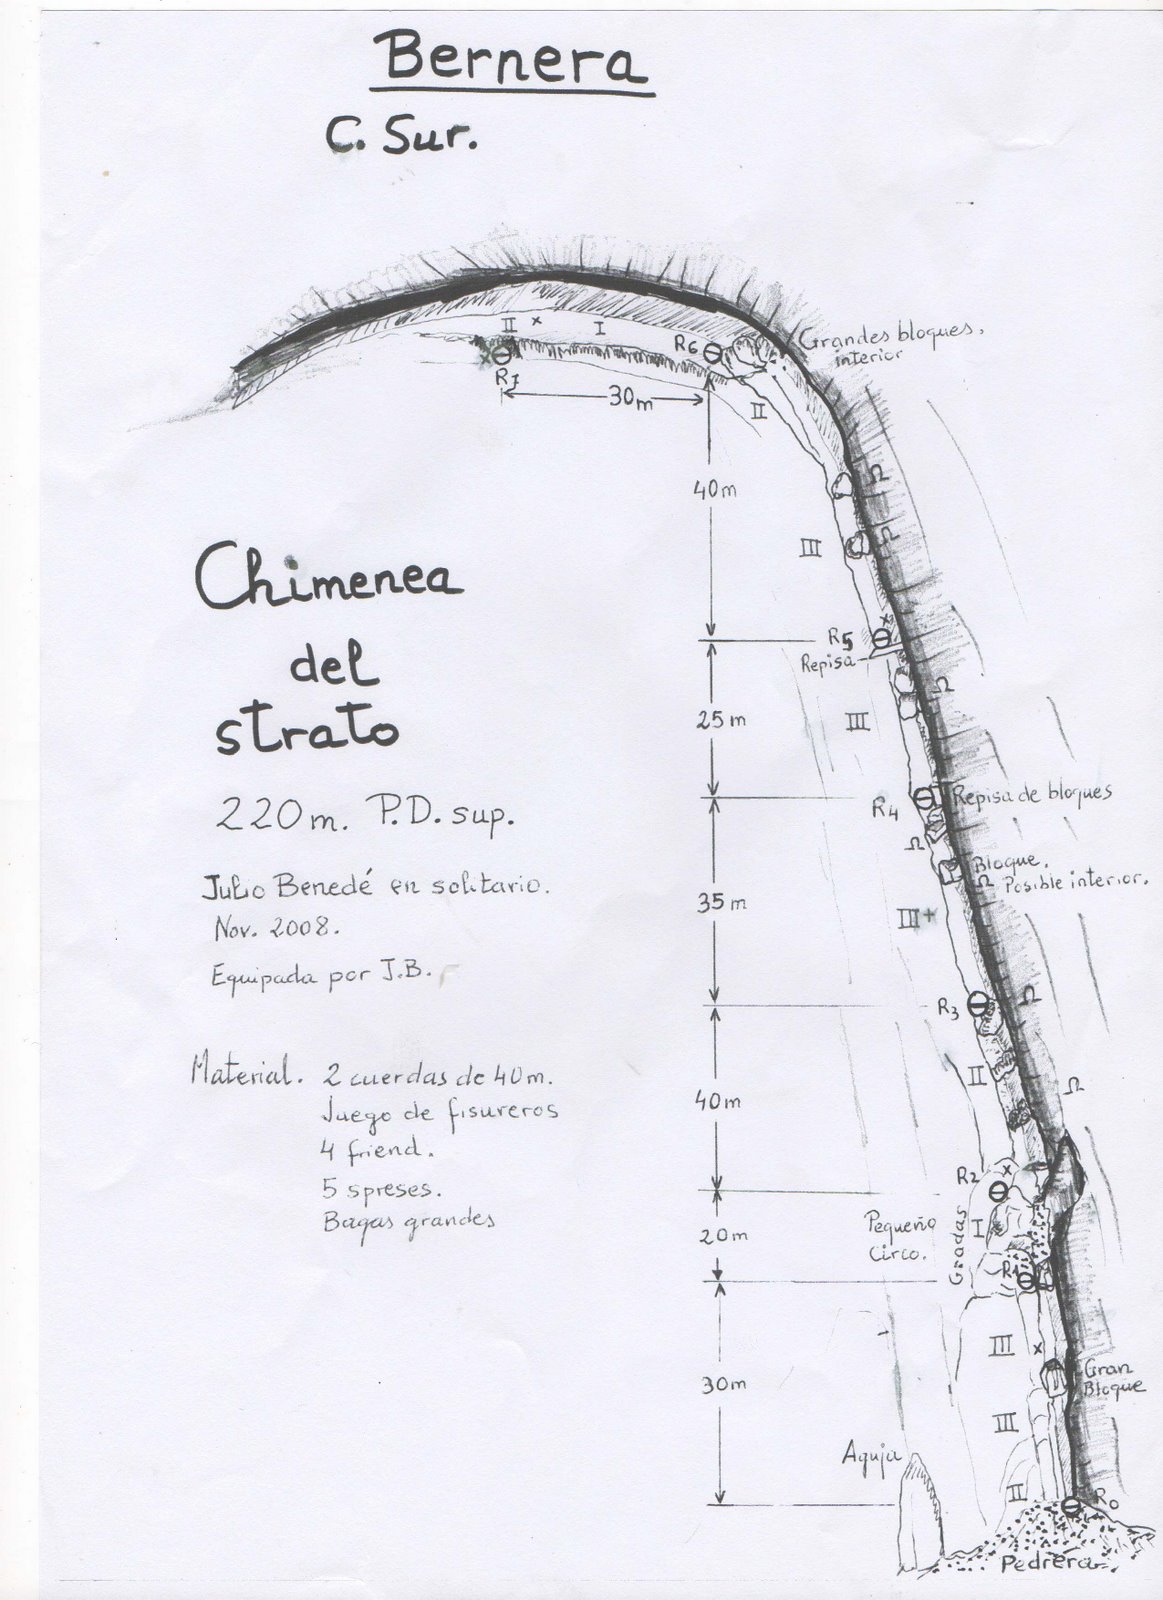 Bernera
C. Sur.
Grandes bloques.
interior
II x I
R6
R7
30m
II
40m
III
R5
Repisa
25m
III
R4
Repisa de bloques
Bloque.
Posible interior.
35m
III+
R3
II
40m
R2
x
Pequeño
Circo.
Gradas
I
20m
R1
III
x
Gran
Bloque
30m
III
Aguja
II
R0
Pedrera
Chimenea
del
strato
220m. P.D. sup.
Julio Benedé en solitario.
Nov. 2008.
Equipada por J.B.
Material. 2 cuerdas de 40m.
Juego de fisureros
4 friend.
5 spreses.
Bagas grandes